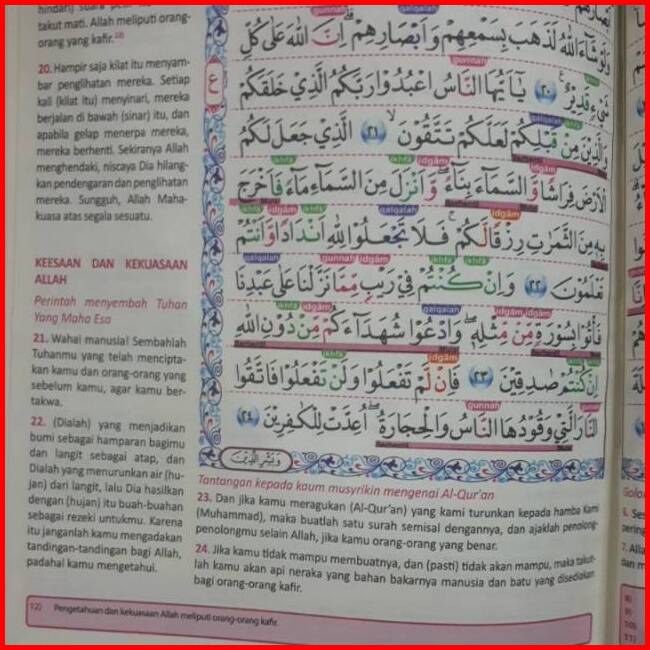 hindari) suara
takut mati. Allah meliputi orang-
orang yang kafir.¹²⁾
20. Hampir saja kilat itu menyam-
bar penglihatan mereka. Setiap
kali (kilat itu) menyinari, mereka
berjalan di bawah (sinar) itu, dan
apabila gelap menerpa mereka,
mereka berhenti. Sekiranya Allah
menghendaki, niscaya Dia hilang-
kan pendengaran dan penglihatan
mereka. Sungguh, Allah Maha-
kuasa atas segala sesuatu.
KEESAAN DAN KEKUASAAN
ALLAH
Perintah menyembah Tuhan
Yang Maha Esa
21. Wahai manusia! Sembahlah
Tuhanmu yang telah mencipta-
kan kamu dan orang-orang yang
sebelum kamu, agar kamu ber-
takwa.
22. (Dialah) yang menjadikan
bumi sebagai hamparan bagimu
dan langit sebagai atap, dan
Dialah yang menurunkan air (hu-
jan) dari langit, lalu Dia hasilkan
dengan (hujan) itu buah-buahan
sebagai rezeki untukmu. Karena
itu janganlah kamu mengadakan
tandingan-tandingan bagi Allah,
padahal kamu mengetahui.
وَلَوْ شَاۤءَ اللّٰهُ لَذَهَبَ بِسَمْعِهِمْ وَاَبْصَارِهِمْ ۗ اِنَّ اللّٰهَ عَلٰى كُلِّ
شَيْءٍ قَدِيْرٌ ࣖ ٢٠ يٰٓاَيُّهَا النَّاسُ اعْبُدُوْا رَبَّكُمُ الَّذِيْ خَلَقَكُمْ
وَالَّذِيْنَ مِنْ قَبْلِكُمْ لَعَلَّكُمْ تَتَّقُوْنَ ۙ ٢١ الَّذِيْ جَعَلَ لَكُمُ
الْاَرْضَ فِرَاشًا وَّالسَّمَاۤءَ بِنَاۤءً ۖ وَّاَنْزَلَ مِنَ السَّمَاۤءِ مَاۤءً فَاَخْرَجَ
بِهٖ مِنَ الثَّمَرٰتِ رِزْقًا لَّكُمْ ۚ فَلَا تَجْعَلُوْا لِلّٰهِ اَنْدَادًا وَّاَنْتُمْ
تَعْلَمُوْنَ ٢٢ وَاِنْ كُنْتُمْ فِيْ رَيْبٍ مِّمَّا نَزَّلْنَا عَلٰى عَبْدِنَا
فَأْتُوْا بِسُوْرَةٍ مِّنْ مِّثْلِهٖ ۖ وَادْعُوْا شُهَدَاۤءَكُمْ مِّنْ دُوْنِ اللّٰهِ
اِنْ كُنْتُمْ صٰدِقِيْنَ ٢٣ فَاِنْ لَّمْ تَفْعَلُوْا وَلَنْ تَفْعَلُوْا فَاتَّقُوا
النَّارَ الَّتِيْ وَقُوْدُهَا النَّاسُ وَالْحِجَارَةُ ۖ اُعِدَّتْ لِلْكٰفِرِيْنَ ٢٤
وَبَشِّرِ الَّذِيْنَ
Tantangan kepada kaum musyrikin mengenai Al-Qur'an
23. Dan jika kamu meragukan (Al-Qur'an) yang kami turunkan kepada hamba Kami
(Muhammad), maka buatlah satu surah semisal dengannya, dan ajaklah penolong-
penolongmu selain Allah, jika kamu orang-orang yang benar.
24. Jika kamu tidak mampu membuatnya, dan (pasti) tidak akan mampu, maka takut-
lah kamu akan api neraka yang bahan bakarnya manusia dan batu yang disediakan
bagi orang-orang kafir.
12) Pengetahuan dan kekuasaan Allah meliputi orang-orang kafir.